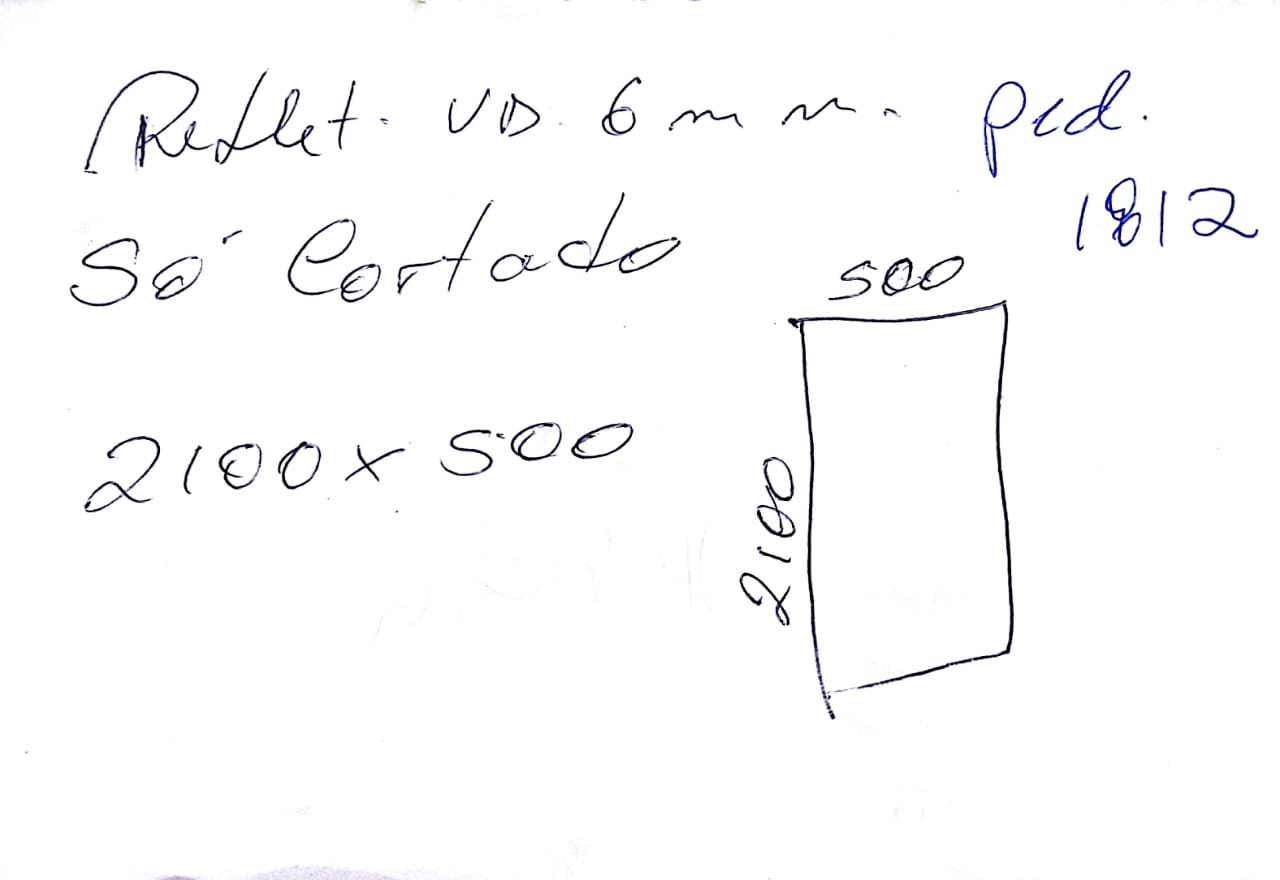 Reflet. VD. 6 mm. ped.
1812
Só Cortado
500
2100 x 500
2100